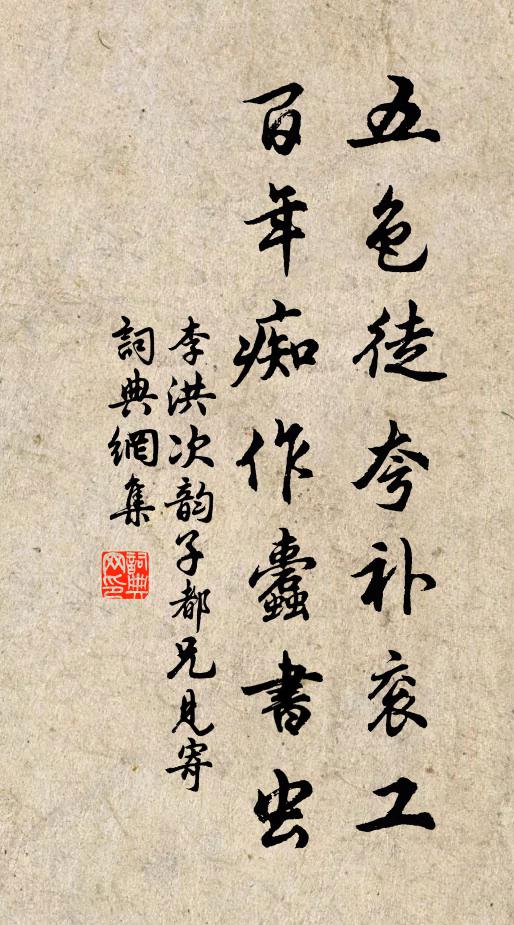 五色徒夸补衮工
百年痴作蠹書虫
李洪次韵子都兄見寄
詞典網集
詞典网印